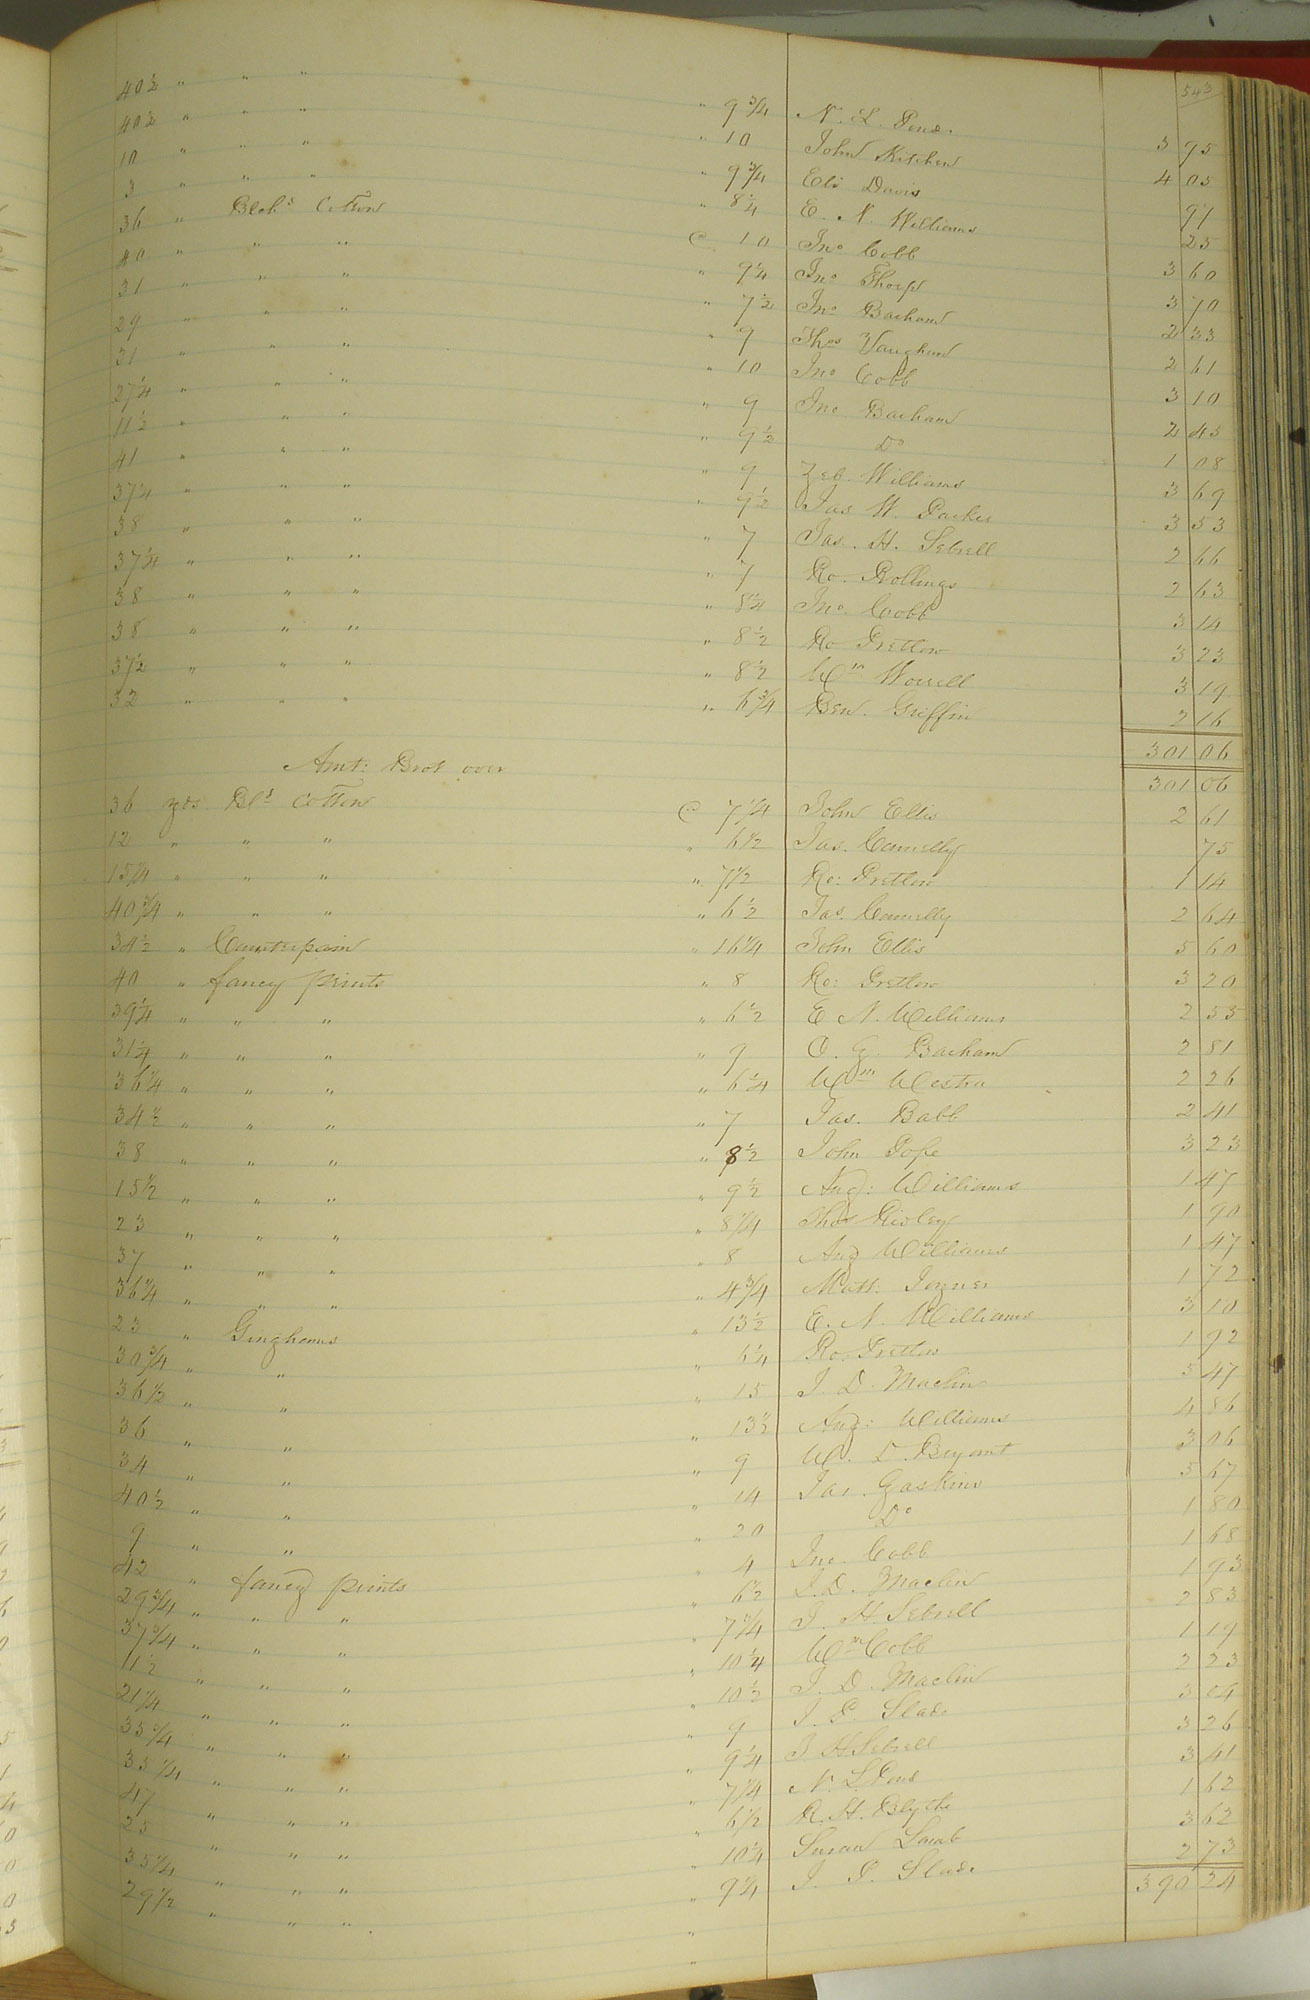 543
40½ " " " " 9¾ N. L. Pons. 3 95
40½ " " " " 10 John Kitchen 4 05
10 " " " " 9¾ Eli Davis 97
3 " " " " 8¼ E. N. Williams 25
36 " Blchd Cotton @ 10 Jno Cobb 3 60
40 " " " " 9¼ Jno Thorp 3 70
31 " " " " 7½ Jno Barham 2 33
29 " " " " 9 Thos Vaughan 2 61
31 " " " " 10 Jno Cobb 3 10
27¼ " " " " 9 Jno Barham 2 45
11½ " " " " 9½ Do 1 08
41 " " " " 9 Zeb. Williams 3 69
37¼ " " " " 9½ Jas W. Parker 3 53
38 " " " " 7 Jas. H. Sebrell 2 66
37¼ " " " " 7 Ro. Rollings 2 63
38 " " " " 8¼ Jno. Cobb 3 14
38 " " " " 8½ Ro Pretlow 3 23
37½ " " " " 8½ Wm Worrell 3 19
32 " " " " 6¾ Ben. Griffin 2 16
301 06
Amt: Brot over 301 06
36 yds Bld Cotton @ 7¼ John Ellis 2 61
12 " " " " 6½ Jas. Connelly 75
15¼ " " " " 7½ Ro: Pretlow 1 14
40¾ " " " " 6½ Jas. Connelly 2 64
34½ " Counterpain " 16¼ John Ellis 5 60
40 " fancy prints " 8 Ro: Pretlow 3 20
39¼ " " " " 6½ E N. Williams 2 55
31¼ " " " " 9 O. G. Barham 2 81
36¼ " " " " 6¼ Wm Westra 2 26
34½ " " " " 7 Jas. Babb 2 41
38 " " " " 8½ John Pope 3 23
15½ " " " " 9½ Aug: Williams 1 47
23 " " " " 8¼ Thos Ridley 1 90
37 " " " " 8 Aug Williams 1 47
36¼ " " " " 4¾ Matt: Joyner 1 72
23 " Ginghams " 13½ E. N. Williams 3 10
30¾ " " " 6¼ Ro. Pretlow 1 92
36½ " " " 15 J. D. Maclin 5 47
36 " " " 13½ Aug: Williams 4 86
34 " " " 9 W. L. Bryant 3 06
40½ " " " 14 Jas. Gaskins 5 67
9 " " " 20 Do 1 80
42 " fancy prints " 4 Jno. Cobb 1 68
29¾ " " " " 6½ J. D. Maclin 1 93
37¾ " " " " 7½ J. H. Sebrell 2 83
11½ " " " " 10¼ Wm Cobb 1 19
21¼ " " " " 10½ J. D. Maclin 2 23
33¾ " " " " 9 J. P. Slade 3 04
35¼ " " " " 9¼ J H Sebrell 3 26
47 " " " " 7¼ N. L. Pons 3 41
25 " " " " 6½ R. H. Blythe 1 62
35¼ " " " " 10¼ Susan Lamb 3 62
29½ " " " " 9¼ J. P. Slade 2 73
390 24